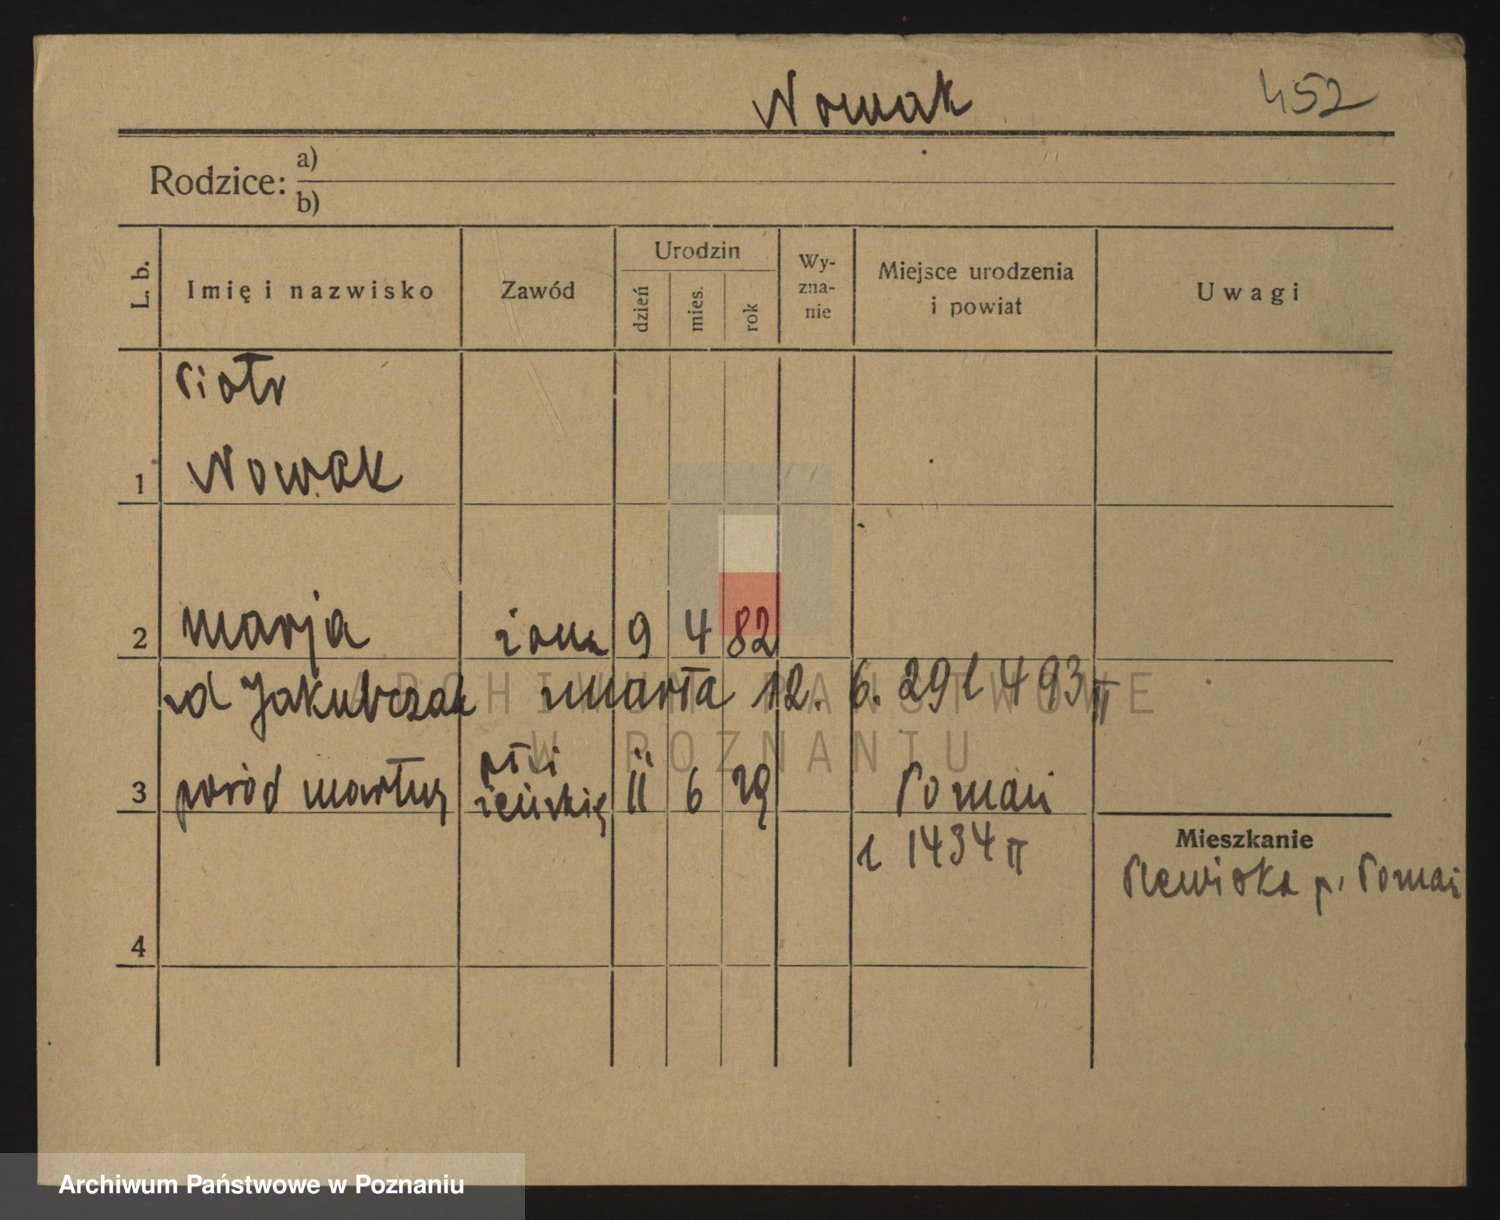 Nowak 452
Rodzice: a)
b)
L. b. Imię i nazwisko Zawód Urodzin dzień mies. rok Wy-zna-nie Miejsce urodzenia i powiat Uwagi
Piotr
1 Nowak
2 Marja żona 9 4 82
zd Jakubczak zmarła 12. 6. 29 l 493 II
płci
3 poród martwy żeńskiej 11 6 29 Poznań
l 1434 II
Mieszkanie
Plewiska p. Poznań
4
ARCHIWUM PAŃSTWOWE
W POZNANIU
Archiwum Państwowe w Poznaniu